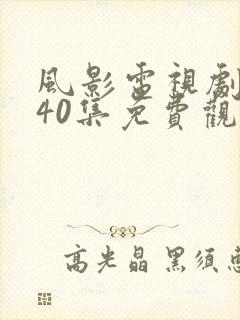 風影雷視劇
40集免費觀
高光晶 黑須